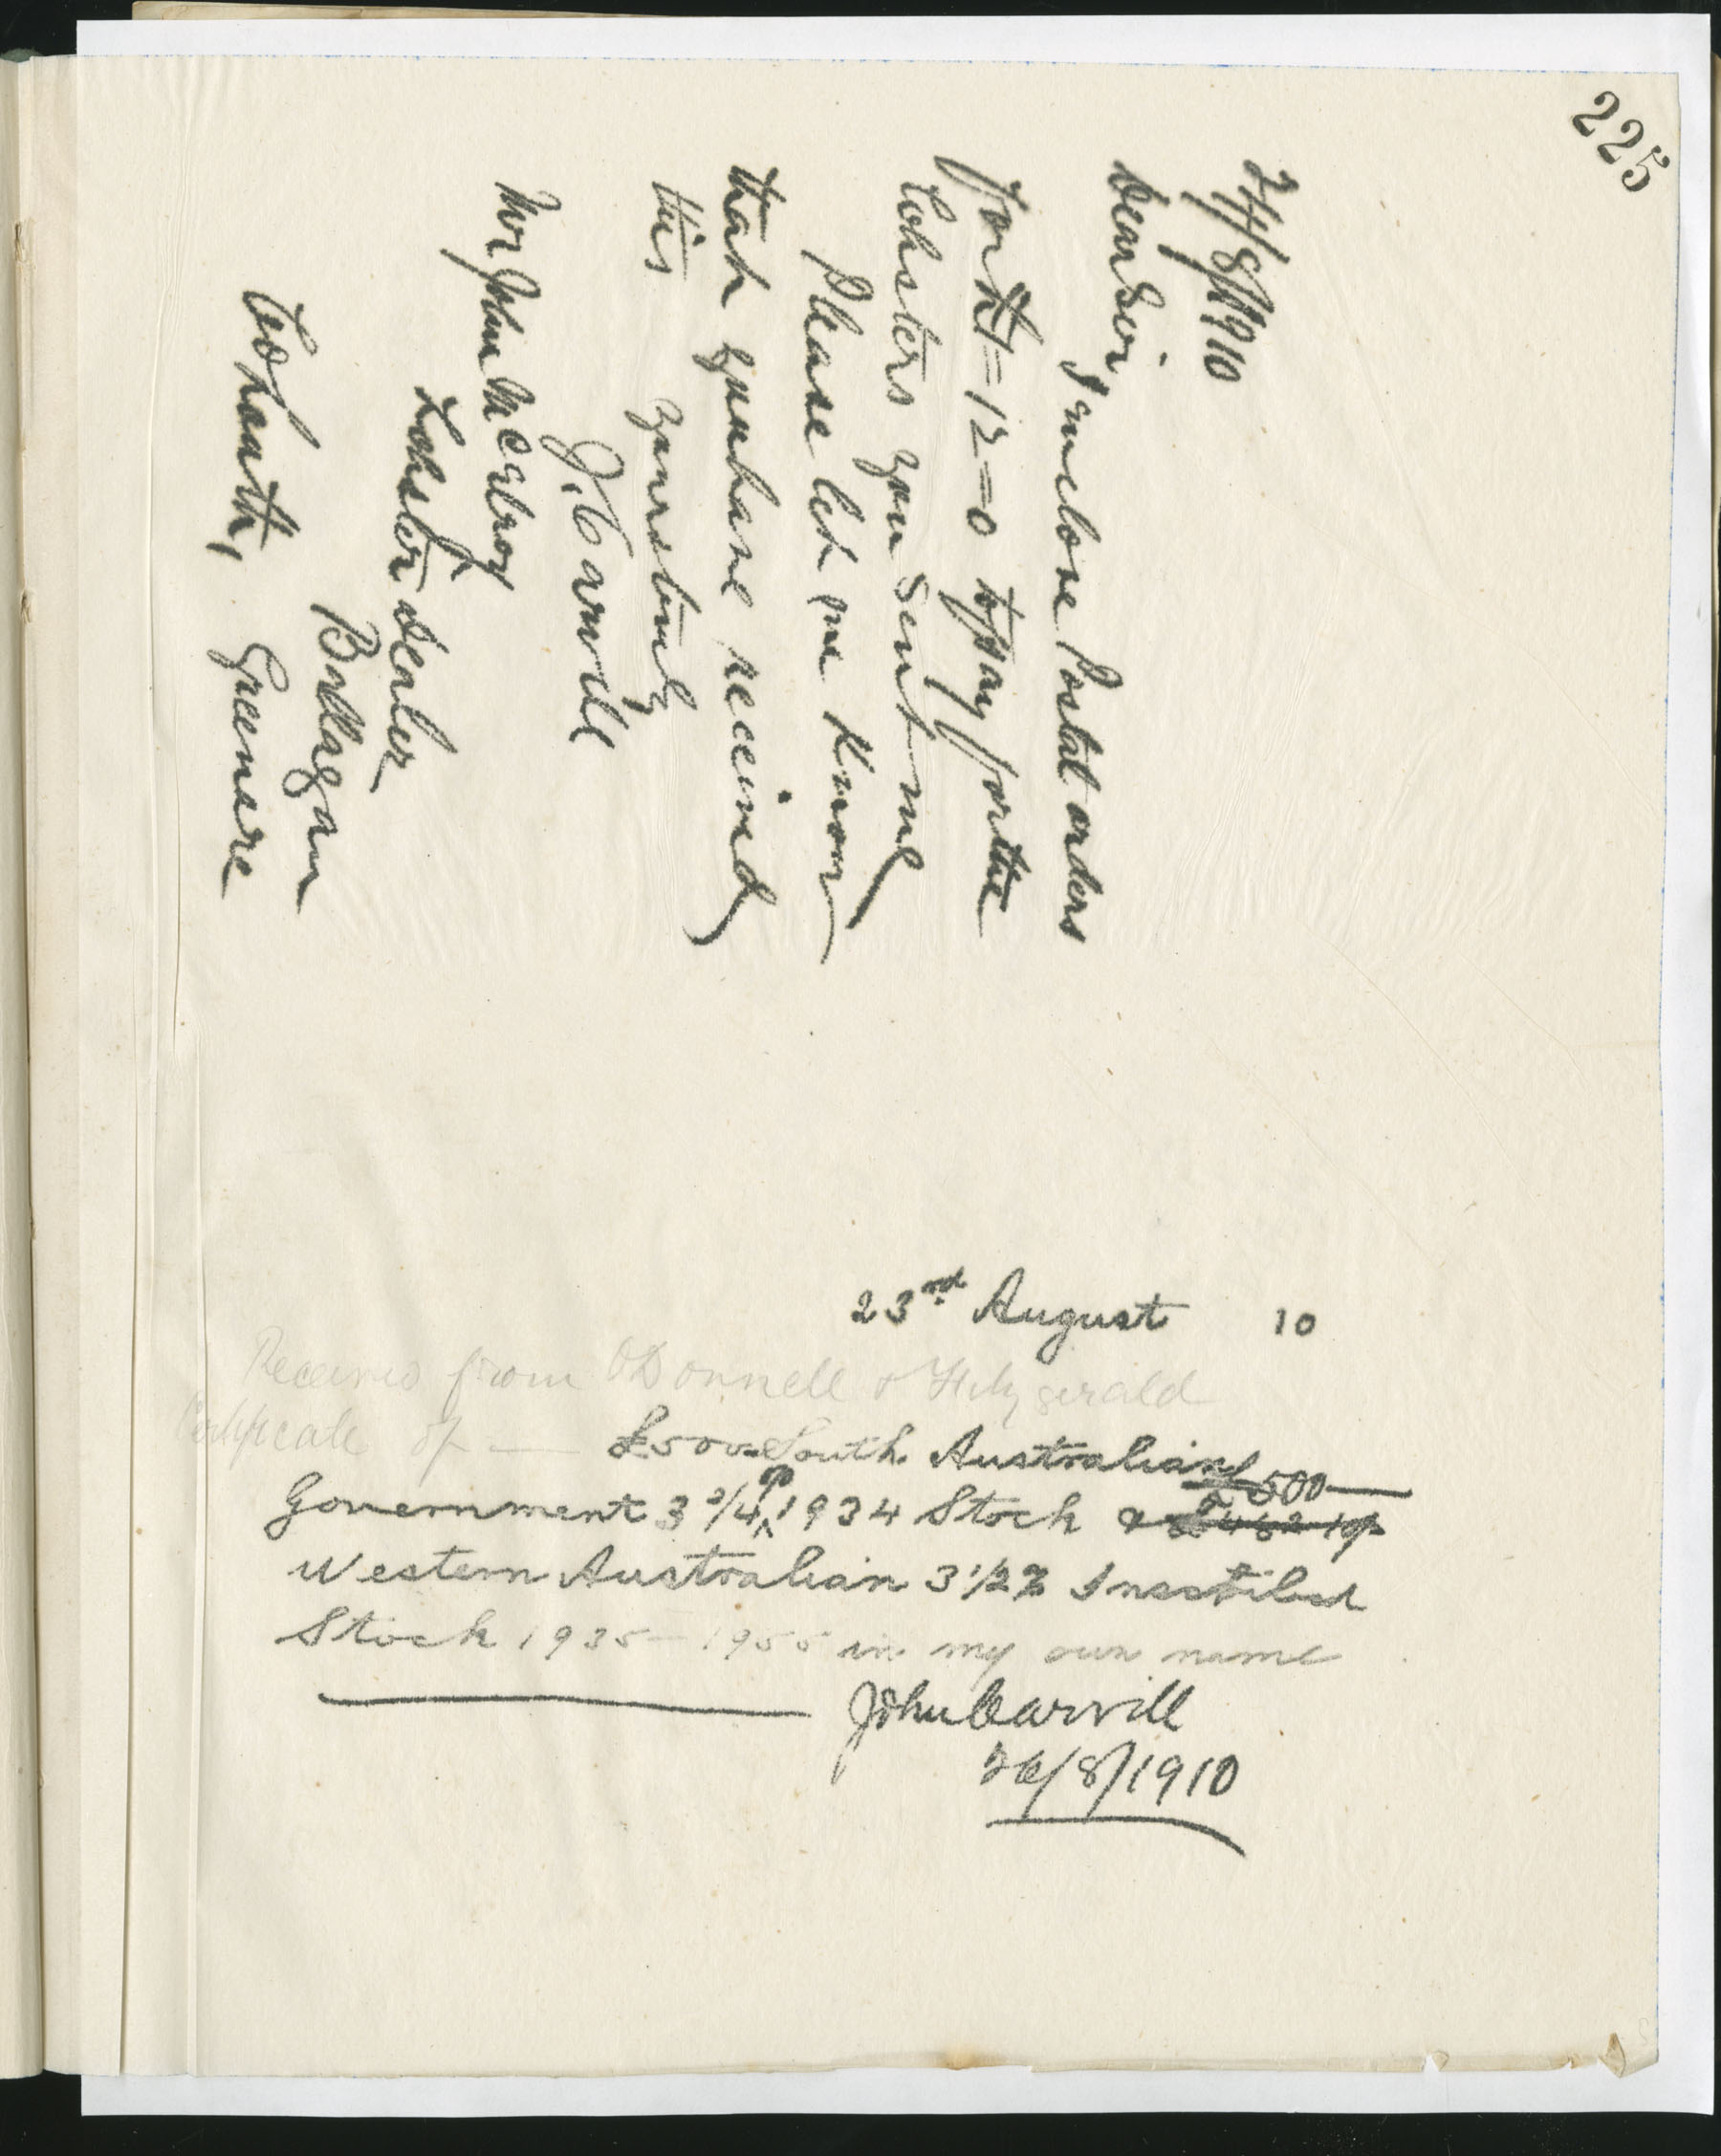 225
24/8/1910
Dear Sir
I enclose Postal orders
for =12=0 to pay for the
Lobsters you sent me
Please let me know
that you have received
this yours truly
J. Carvill
Mr John McElroy
Lobster Dealer
Ballagan
Greenore
Co Louth,
23rd August 10
Received from O'Donnell & Fitzgerald
Certificate of — £500 South Australian
£500—
Government 3 3/4 % 1934 Stock & £462 10/-
Western Australian 3 1/2 % Inscribed
Stock 1935 - 1955 in my own name
John Carvill
26/8/1910